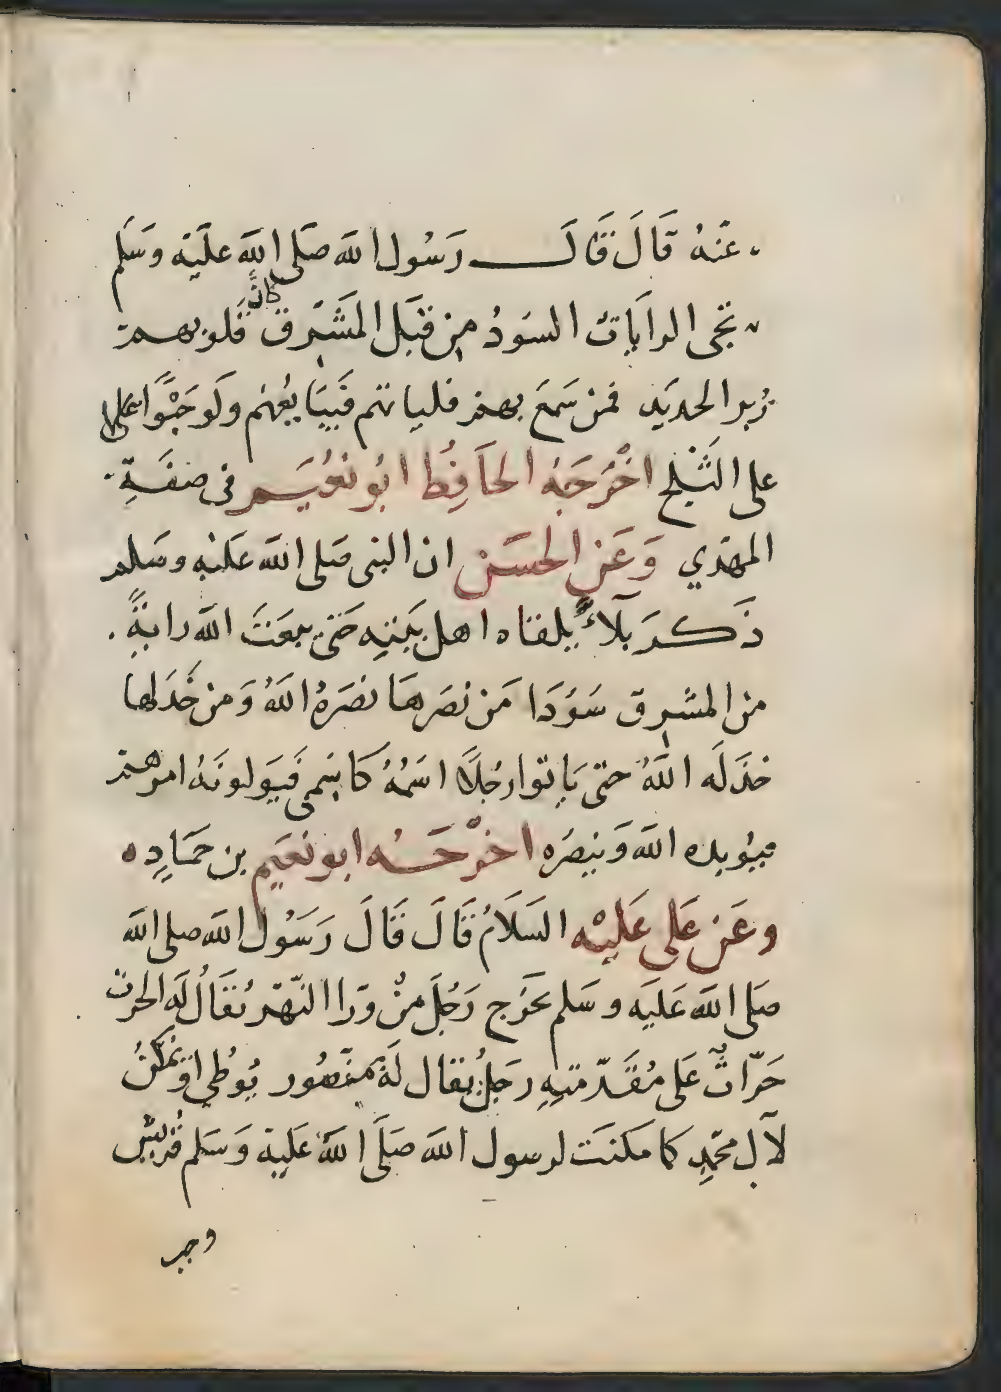 عنه قال قال رسول الله صلى الله عليه وسلم
تجى الرايات السود من قبل المشرق كان قلوبهم
زبر الحديد فمن سمع بهم فلياتهم فيبايعهم ولو حبوا على
على الثلج اخرجه الحافظ ابو نعيم في صفة
المهدي وعن الحسن ان النبي صلى الله عليه وسلم
ذكر بلاء يلقاه اهل بيته حتى يبعث الله راية
من المشرق سودا من نصرها نصره الله ومن خذلها
خذله الله حتى ياتوا رجلا اسمه كاسمى فيولونه امرهم
فيويده الله وينصره اخرجه ابو نعيم بن حماد ه
وعن على عليه السلام قال قال رسول الله صلى الله
صلى الله عليه وسلم يخرج رجل من ورا النهر يقال له الحرث
حراث على مقدمته رجل يقال له منصور يوطي او يمكن
لآل محمد كما مكنت لرسول الله صلى الله عليه وسلم قريش
وجب